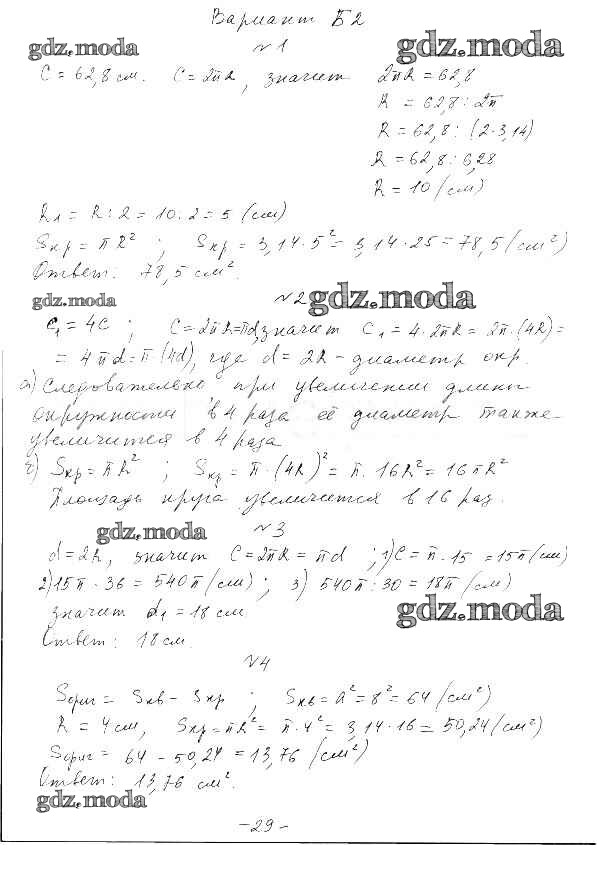 Вариант Б2
gdz.moda №1 gdz.moda
C = 62,8 см. C = 2πR, значит 2πR = 62,8
R = 62,8 : 2π
R = 62,8 : (2·3,14)
R = 62,8 : 6,28
R = 10 (см)
R₁ = R : 2 = 10 : 2 = 5 (см)
Sкр = πR² ; Sкр = 3,14 · 5² = 3,14 · 25 = 78,5 (см²)
Ответ: 78,5 см².
gdz.moda №2 gdz.moda
C₁ = 4C ; C = 2πR = πd значит C₁ = 4·2πR = 2π·(4R) =
= 4πd = π(4d), где d = 2R - диаметр окр.
а) Следовательно, при увеличении длины
окружности в 4 раза её диаметр также
увеличится в 4 раза
б) Sкр = πR² ; Sкр = π·(4R)² = π·16R² = 16πR²
Площадь круга увеличится в 16 раз.
gdz.moda №3
d = 2R, значит C = 2πR = πd ; 1) C = π·15 = 15π (см)
2) 15π · 36 = 540π (см) ; 3) 540π : 30 = 18π (см)
значит d₁ = 18 см gdz.moda
Ответ: 18 см.
№4
Sфиг = Sкв - Sкр ; Sкв = a² = 8² = 64 (см²)
R = 4 см, Sкр = πR² = π·4² = 3,14·16 = 50,24 (см²)
Sфиг = 64 - 50,24 = 13,76 (см²)
Ответ: 13,76 см².
gdz.moda
-29-